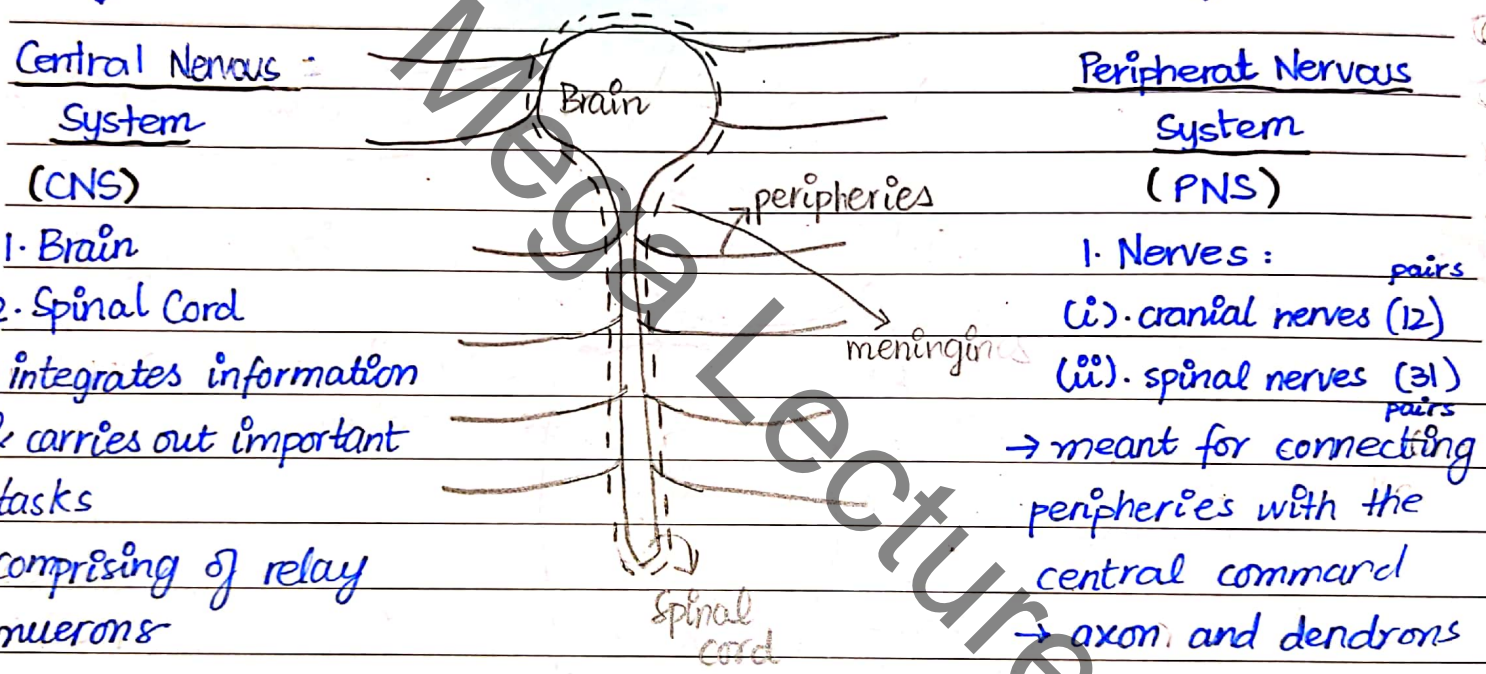 Central Nervous :
System
(CNS)
1. Brain
2. Spinal Cord
integrates information
& carries out important
tasks
comprising of relay
nuerons
Brain
peripheries
meningin
Spinal
cord
Peripheral Nervous
System
(PNS)
1. Nerves :
pairs
(i). cranial nerves (12)
(ii). spinal nerves (31)
pairs
→ meant for connecting
peripheries with the
central command
→ axon and dendrons
Mega Lecture